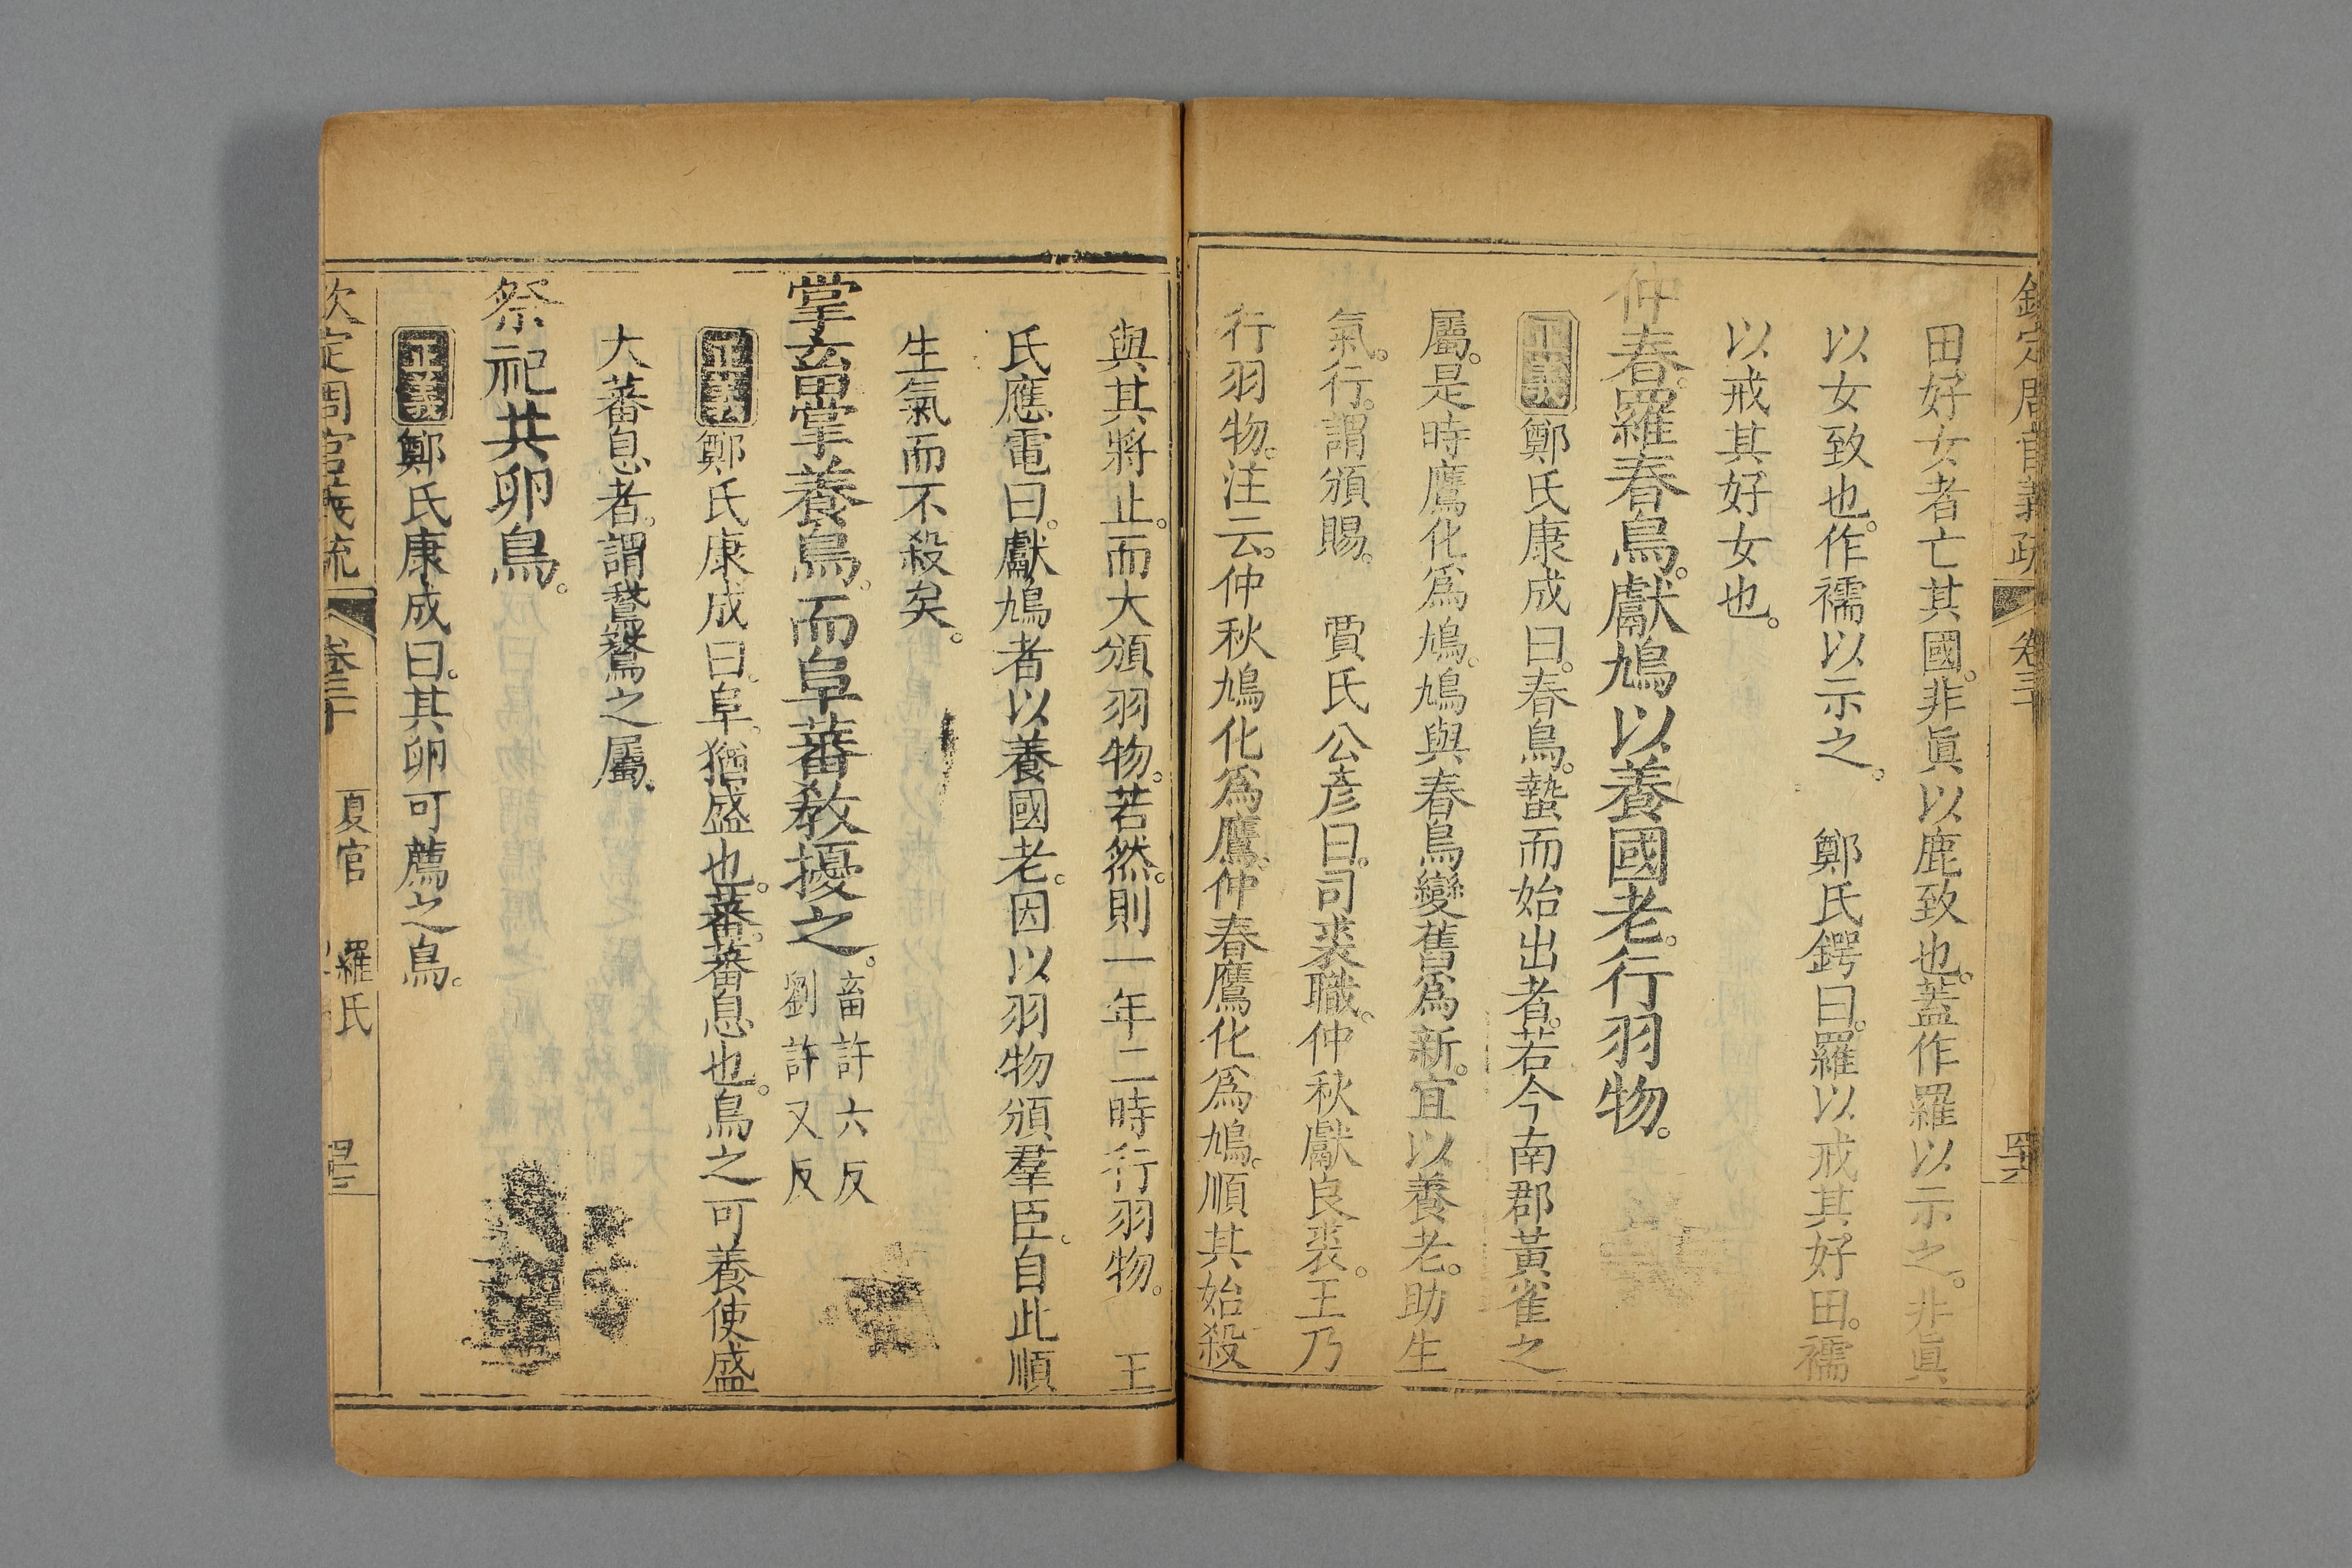 欽定周官義疏 卷三十
田。好女者亡其國。非眞以鹿致也。蓋作羅以示之。非眞
以女致也。作襦以示之。 鄭氏鍔曰。羅以戒其好田。襦
以戒其好女也。
仲春。羅春鳥。獻鳩以養國老。行羽物。
正義 鄭氏康成曰。春鳥。蟄而始出者。若今南郡黃雀之
屬。是時鷹化爲鳩。鳩與春鳥變舊爲新。宜以養老。助生
氣。行。謂頒賜。 賈氏公彥曰。司裘職。仲秋獻良裘。王乃
行羽物。注云。仲秋鳩化爲鷹。仲春鷹化爲鳩。順其始殺
與其將止。而大頒羽物。若然。則一年二時行羽物。 王
氏應電曰。獻鳩者以養國老。因以羽物頒羣臣。自此順
生氣而不殺矣。
掌畜掌養鳥。而阜蕃教擾之。 畜許六反
劉許又反
正義 鄭氏康成曰。阜。猶盛也。蕃。蕃息也。鳥之可養使盛
大蕃息者。謂鵞鶩之屬。
祭祀共卵鳥。
正義 鄭氏康成曰。其卵可薦之鳥。
欽定周官義疏 卷三十 夏官 羅氏